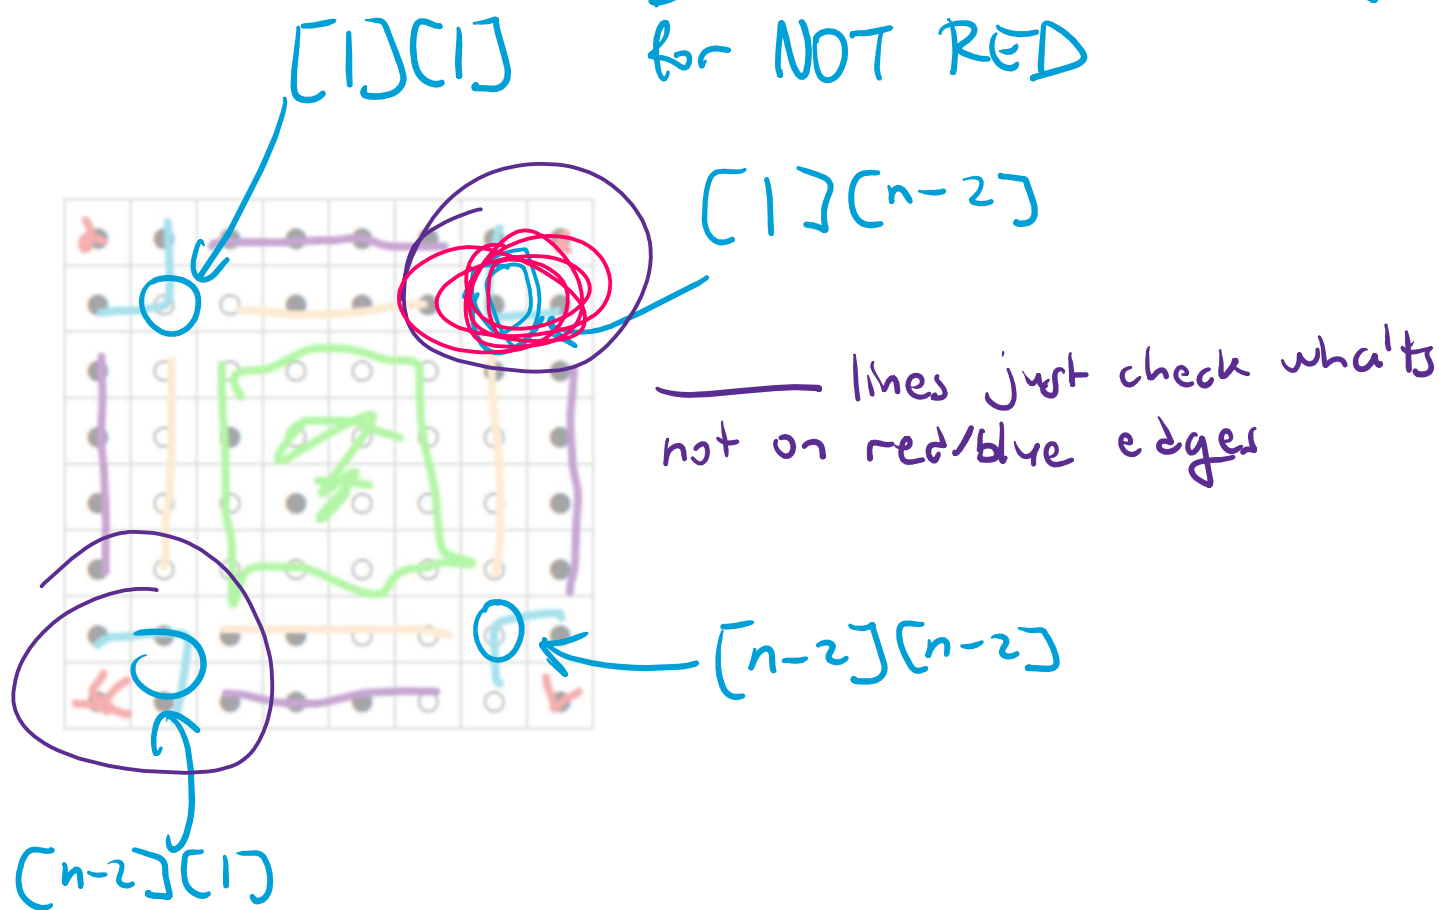 [1][1]
for NOT RED
[1][n-2]
lines just check what's
not on red/blue edges
[n-2][n-2]
[n-2][1]